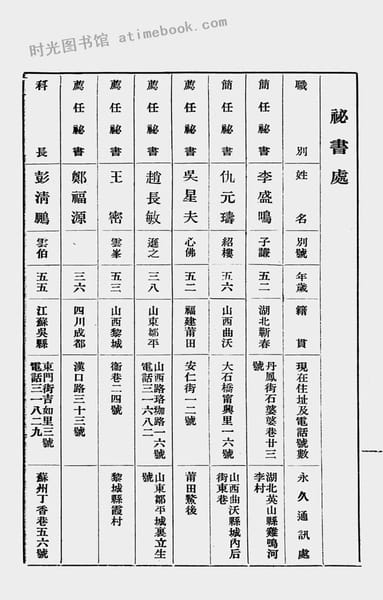 时光图书馆 atimebook.com
祕書處
職別 姓名 別號 年歲 籍貫 現在住址及電話號數 永久通訊處
簡任祕書 李盛鳴 子謙 五二 湖北蘄春 丹鳳街石婆婆巷廿三號 湖北英山縣雞鳴河李村
簡任祕書 仇元璹 紹樓 五六 山西曲沃 大石橋甯興里一六號 山西曲沃縣城內后街東巷
薦任祕書 吳星夫 心佛 五二 福建莆田 安仁街一二號 莆田黨後
薦任祕書 趙長敏 遜之 三八 山東鄒平 山西路珞珈路一六號電話三一六八二 山東鄒平城裏立生號
薦任祕書 王密 雲峯 五三 山西黎城 衞巷二四號 黎城縣霞村
薦任祕書 鄭福源 三六 四川成都 漢口路三十三號
科長 彭清鵬 雲伯 五五 江蘇吳縣 東門街吉如里三號電話三一八二九 蘇州丁香巷五六號